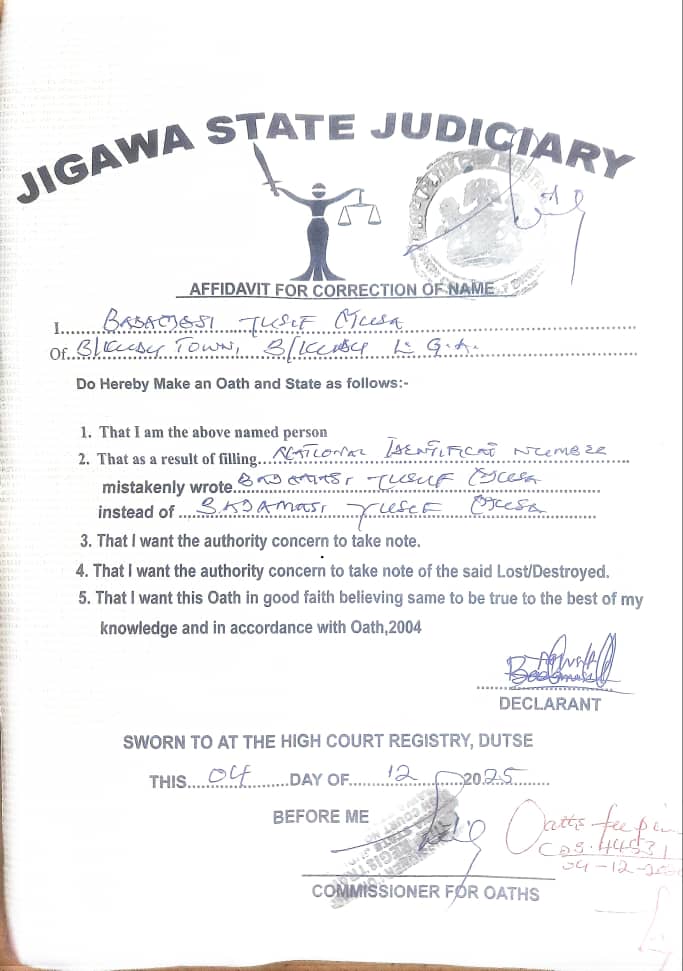 JIGAWA STATE JUDICIARY
AFFIDAVIT FOR CORRECTION OF NAME
I BADAMOSI YUSUF MUSA
Of B/KUDU TOWN, B/KUDU L.G.A.
Do Hereby Make an Oath and State as follows:-
1. That I am the above named person
2. That as a result of filling NATIONAL IDENTIFICAT NUMBER
mistakenly wrote YUSUF MUSA
instead of BADAMASI YUSUF MUSA
3. That I want the authority concern to take note.
4. That I want the authority concern to take note of the said Lost/Destroyed.
5. That I want this Oath in good faith believing same to be true to the best of my
knowledge and in accordance with Oath,2004
DECLARANT
SWORN TO AT THE HIGH COURT REGISTRY, DUTSE
THIS 04 DAY OF 12 2025
BEFORE ME
Oaths fee
44531
04-12-
COMMISSIONER FOR OATHS